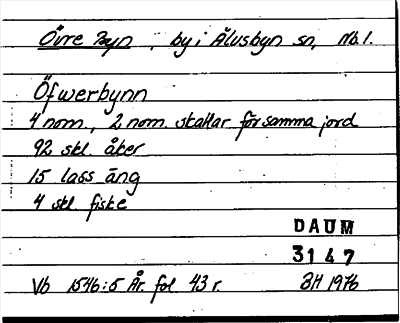 Övre Byn, by i Älvsbyn sn, Nb.l.
Öfwerbynn
4 nom., 2 nom. skattar för samma jord
92 skl. åker
15 lass äng
4 skl. fiske
DAUM
3147
Vb 1546:5 År. fol. 43 r. BH 1976